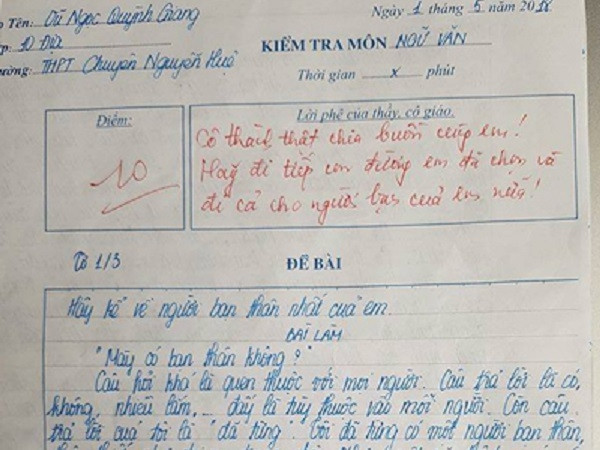 Tên: Vũ Ngọc Quỳnh Giang
Ngày 1 tháng 5 năm 20
10 Địa
KIỂM TRA MÔN NGỮ VĂN
THPT Chuyên Nguyễn Huệ
Thời gian x phút
Điểm:
Lời phê của thầy, cô giáo.
10
Cô thành thật chia buồn cùng em!
Hãy đi tiếp con đường em đã chọn và
đi cả cho người bạn của em nữa!
Tờ 1/3
ĐỀ BÀI
Hãy kể về người bạn thân nhất của em.
BÀI LÀM
"Mày có bạn thân không?"
Câu hỏi khá là quen thuộc với mọi người. Câu trả lời là có,
không, nhiều lắm,... đấy là tùy thuộc vào mỗi người. Còn câu
trả lời của tôi là "đã từng". Tôi đã từng có một người bạn thân,